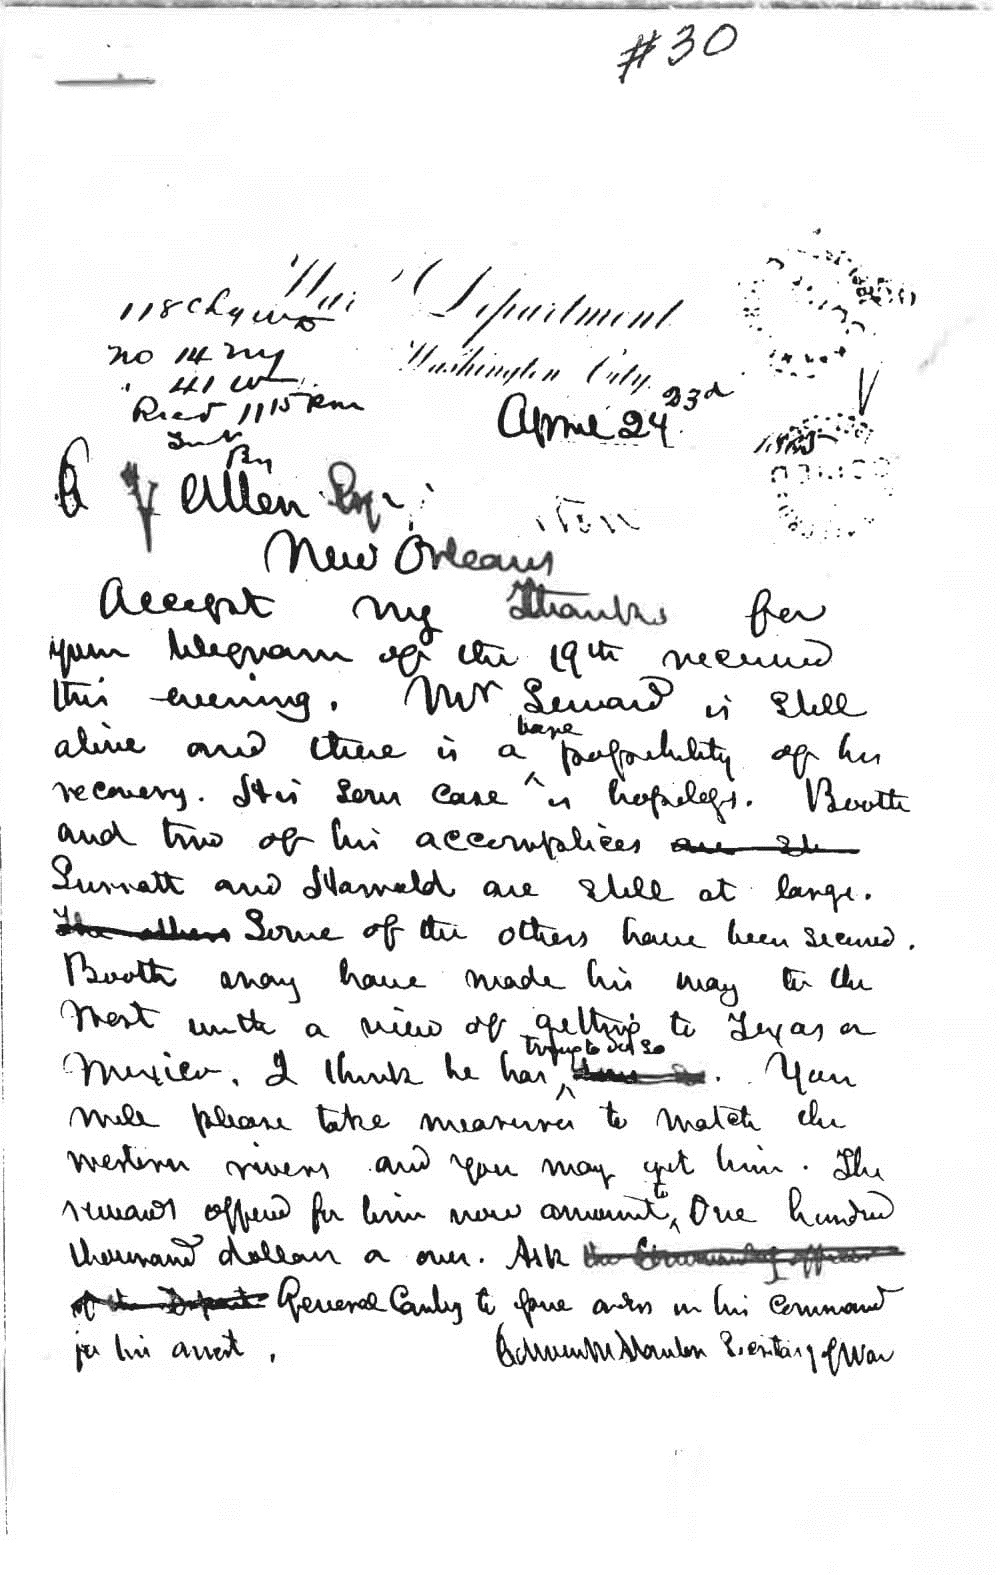 #30
War Department
Washington City,
118 Chg WD
No 14 Ny
41 W
Recd 1115 Pm
April 24 23d
1865
Allen Esqr
New Orleans
Accept my Thanks for
your telegram of the 19th received
this evening. Mr Seward is still
alive and there is a bare probability of his
recovery. His son's case is hopeless. Booth
and two of his accomplices are st
Surratt and Harrold are still at large.
The others Some of the others have been secured.
Booth may have made his way to the
West with a view of getting to Texas or
Mexico. I think he has trying to do so. You
will please take measures to watch the
western rivers and you may get him. The
rewards offered for him now amount to One hundred
thousand dollars or over. Ask the Commanding officer
of the Department General Canby to give orders in his command
for his arrest.
Edwin M Stanton Secretary of War